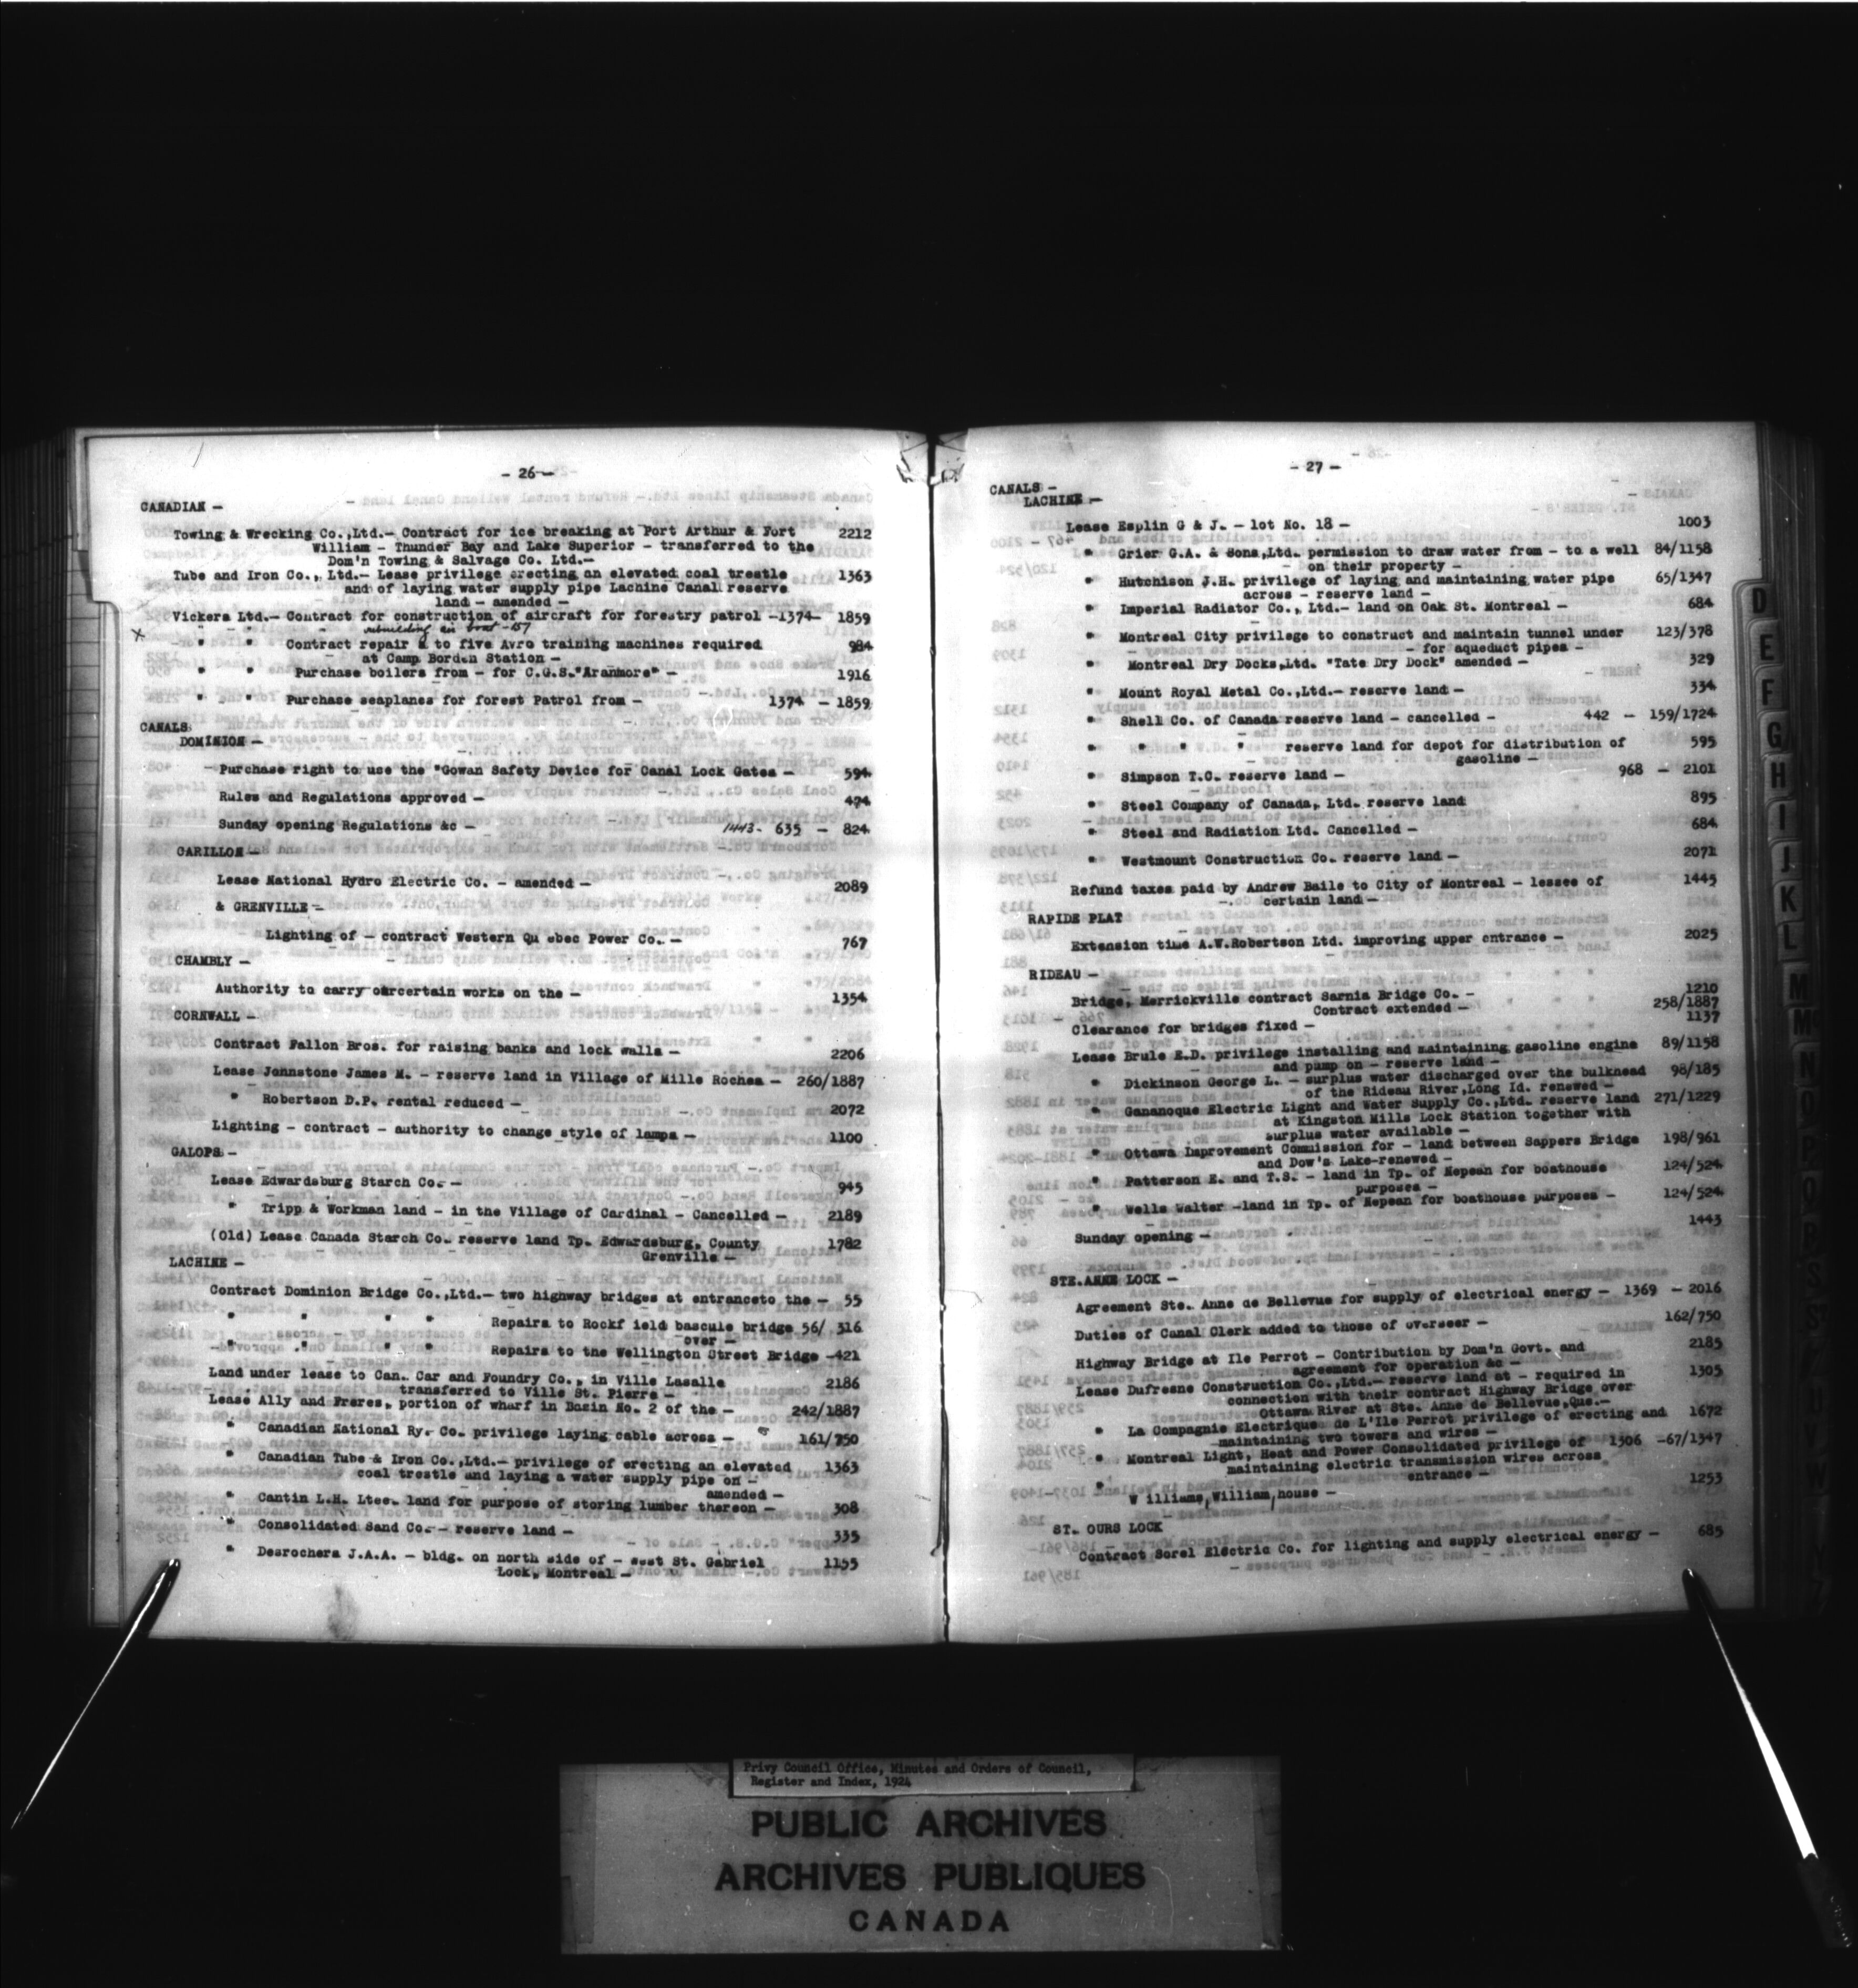 - 26 -
CANADIAN -
Towing & Wrecking Co.,Ltd.- Contract for ice breaking at Port Arthur & Fort 2212
William - Thunder Bay and Lake Superior - transferred to the
Dom'n Towing & Salvage Co. Ltd.-
Tube and Iron Co., Ltd.- Lease privilege erecting an elevated coal trestle 1363
and of laying water supply pipe Lachine Canal reserve
land - amended -
Vickers Ltd.- Contract for construction of aircraft for forestry patrol -1374- 1859
" " " rebuilding air boat - 157
X
" " Contract repair & to five Avro training machines required 984
at Camp Borden Station -
" " Purchase boilers from - for C.G.S."Aranmore" - 1916
" " Purchase seaplanes for forest Patrol from - 1374 - 1859
CANALS
DOMINION -
Purchase right to use the "Gowan Safety Device for Canal Lock Gates - 594
Rules and Regulations approved - 474
Sunday opening Regulations &c - 1443- 635 - 824
CARILLON -
Lease National Hydro Electric Co. - amended - 2089
& GRENVILLE -
Lighting of - contract Western Qu ebec Power Co. - 767
CHAMBLY -
Authority to carry on certain works on the - 1354
CORNWALL -
Contract Fallon Bros. for raising banks and lock walls - 2206
Lease Johnstone James M. - reserve land in Village of Mille Roches - 260/1887
" Robertson D.P. rental reduced - 2072
Lighting - contract - authority to change style of lamps - 1100
GALOPS -
Lease Edwardsburg Starch Co. - 945
" Tripp & Workman land - in the Village of Cardinal - Cancelled - 2189
(Old) Lease Canada Starch Co. reserve land Tp. Edwardsburg, County 1782
Grenville -
LACHINE -
Contract Dominion Bridge Co.,Ltd.- two highway bridges at entranceto the - 55
" " " " Repairs to Rockf ield bascule bridge 56/ 316
over -
" " " " Repairs to the Wellington Street Bridge -421
Land under lease to Can. Car and Foundry Co., in Ville Lasalle 2186
transferred to Ville St. Pierre -
Lease Ally and Freres, portion of wharf in Basin No. 2 of the - 242/1887
" Canadian National Ry. Co. privilege laying cable across - 161/750
" Canadian Tube & Iron Co.,Ltd.- privilege of erecting an elevated 1363
coal trestle and laying a water supply pipe on -
amended -
" Cantin L.H. Ltee. land for purpose of storing lumber thereon - 308
" Consolidated Sand Co. - reserve land - 335
" Desrochers J.A.A. - bldg. on north side of - west St. Gabriel 1155
Lock, Montreal -
- 27 -
CANALS -
LACHINE -
Lease Esplin G & J. - lot No. 18 - 1003
" Grier G.A. & Sons,Ltd. permission to draw water from - to a well 84/1158
on their property -
" Hutchison J.H. privilege of laying and maintaining water pipe 65/1347
across - reserve land -
" Imperial Radiator Co., Ltd.- land on Oak St. Montreal - 684
" Montreal City privilege to construct and maintain tunnel under 123/378
- for aqueduct pipes -
" Montreal Dry Docks,Ltd. "Tate Dry Dock" amended - 329
" Mount Royal Metal Co.,Ltd.- reserve land - 334
" Shell Co. of Canada reserve land - cancelled - 442 - 159/1724
" " " " reserve land for depot for distribution of 595
gasoline -
" Simpson T.C. reserve land - 968 - 2101
" Steel Company of Canada, Ltd. reserve land 895
" Steel and Radiation Ltd. Cancelled - 684
" Westmount Construction Co. reserve land - 2071
Refund taxes paid by Andrew Baile to City of Montreal - lessee of 1445
certain land -
RAPIDE PLAT
Extension time A.W.Robertson Ltd. improving upper entrance - 2025
RIDEAU -
Bridge, Merrickville contract Sarnia Bridge Co. - 1210
Contract extended - 258/1887
Clearance for bridges fixed - 1137
Lease Brule E.D. privilege installing and maintaining gasoline engine 89/1158
and pump on - reserve land -
" Dickinson George L. - surplus water discharged over the bulkhead 98/185
of the Rideau River,Long Id. renewed -
" Gananoque Electric Light and Water Supply Co.,Ltd. reserve land 271/1229
at Kingston Mills Lock Station together with
surplus water available -
" Ottawa Improvement Commission for - land between Sappers Bridge 198/961
and Dow's Lake-renewed -
" Patterson E. and T.S. - land in Tp. of Nepean for boathouse 124/524
purposes -
" Wells Walter -land in Tp. of Nepean for boathouse purposes - 124/524
Sunday opening - 1443
STE.ANNE LOCK -
Agreement Ste. Anne de Bellevue for supply of electrical energy - 1369 - 2016
Duties of Canal Clerk added to those of overseer - 162/750
Highway Bridge at Ile Perrot - Contribution by Dom'n Govt. and 2185
agreement for operation &c -
Lease Dufresne Construction Co.,Ltd.- reserve land at - required in 1305
connection with their contract Highway Bridge over
Ottawa River at Ste. Anne de Bellevue,Que.-
" La Compagnie Electrique de L'Ile Perrot privilege of erecting and 1672
maintaining two towers and wires -
" Montreal Light, Heat and Power Consolidated privilege of 1306 -67/1347
maintaining electric transmission wires across
entrance -
" W illiams,William,house - 1253
ST. OURS LOCK
Contract Sorel Electric Co. for lighting and supply electrical energy - 685
D
E
F
G
H
I
J
K
L
M
Mc
N
O
P
Privy Council Office, Minutes and Orders of Council,
Register and Index, 1924
PUBLIC ARCHIVES
ARCHIVES PUBLIQUES
CANADA